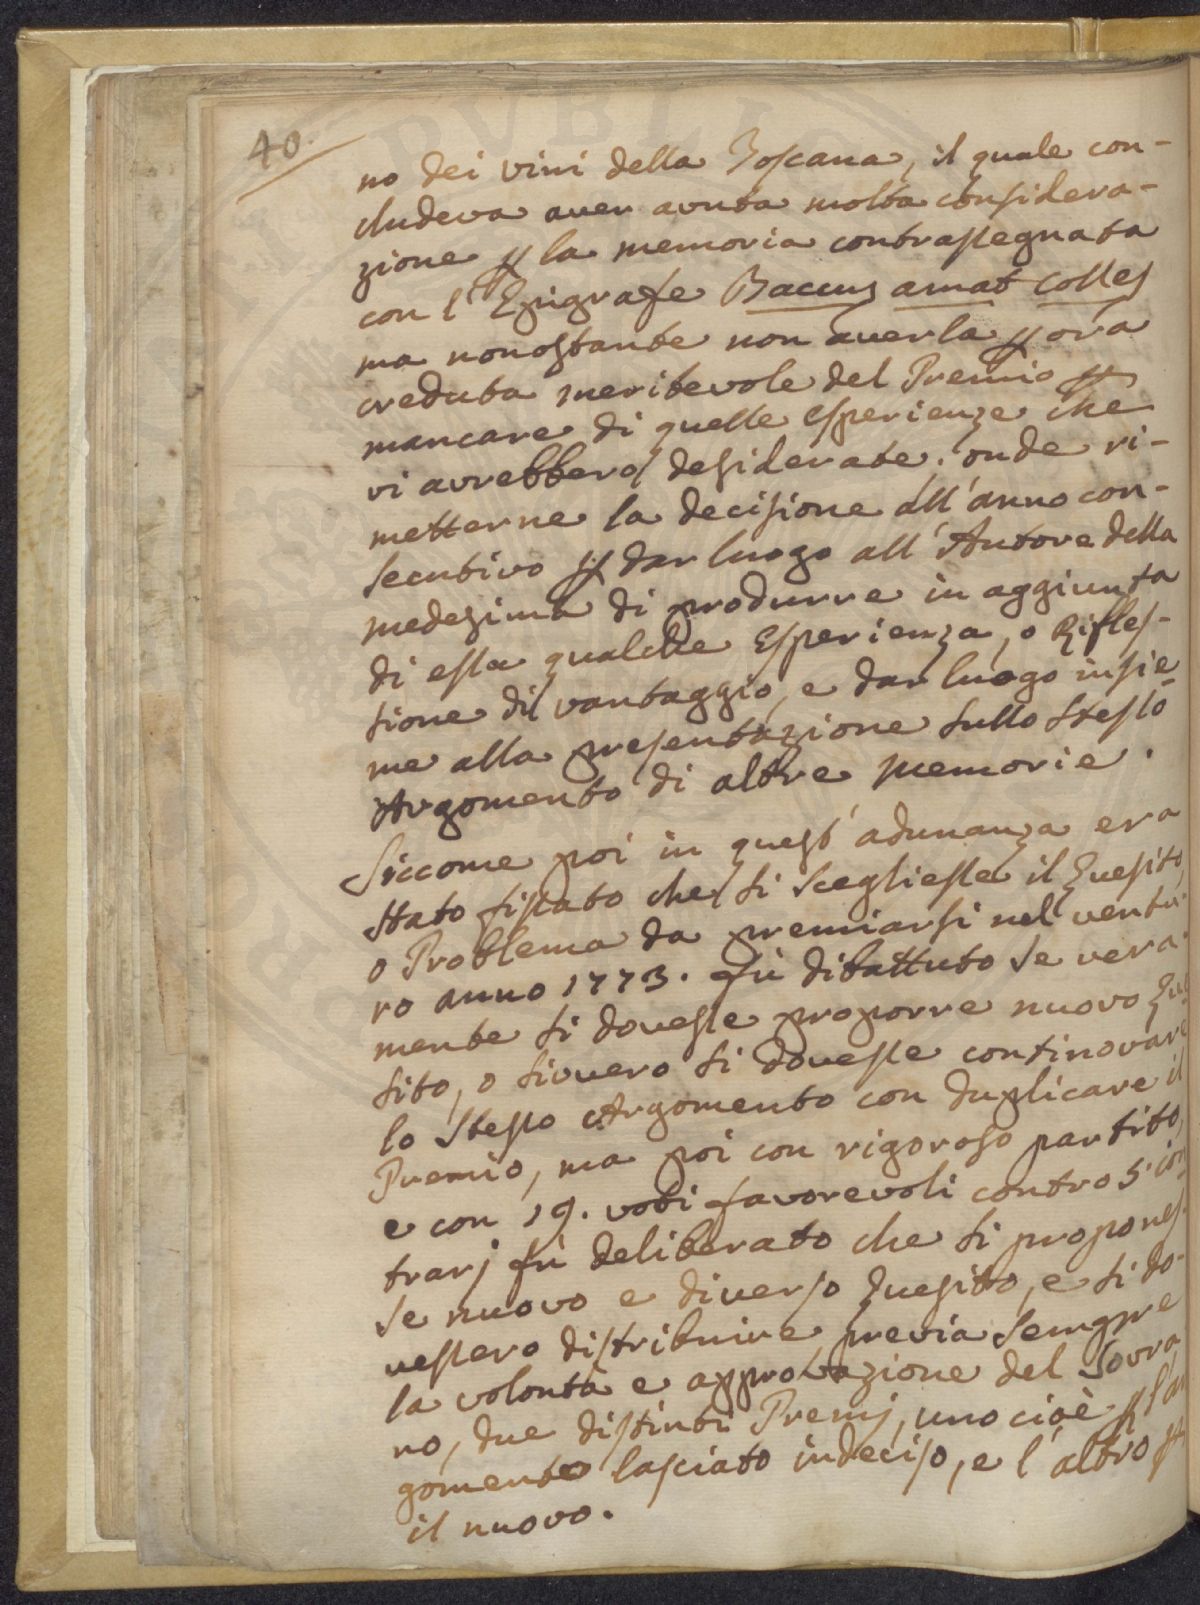 40.
no dei vini della Toscana, il quale con-
cludeva aver avuta molta considera-
zione p la memoria contrassegnata
con l'Epigrafe Baccus amat colles
ma nonostante non averla p ora
creduta meritevole del Premio p
mancare di quelle esperienze che
vi avrebbero desiderate. onde ri-
metterne la decisione all'anno con-
secutivo p dar luogo all'Autore della
medesima di produrre in aggiunta
di essa qualche Esperienza, o Rifles-
sione di vantaggio, e dar luogo insie-
me alla presentazione sullo stesso
Argomento di altre memorie.
Siccome poi in quest'adunanza era
stato fissato che si scegliesse il Quesito,
o Problema da premiarsi nel ventu-
ro anno 1773. fù dibattuto se vera-
mente si dovesse proporre nuovo Que
sito, o sivvero si dovesse continovare
lo stesso Argomento con duplicare il
Premio, ma poi con rigoroso partito,
e con 19. voti favorevoli contro 5. con
trarj fù deliberato che si propones-
se nuovo e diverso Quesito, e si do-
vessero distribuire previa sempre
la volontà e approvazione del Sovra
no, due distinti Premj, uno cioè p l'ar
gomento lasciato indeciso, e l'altro p
il nuovo.
PUBLI